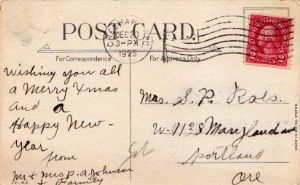 POST CARD.
DEC 23
3-PM
1925
For Correspondence
For Address Only
Wishing you all
a Merry Xmas
and a
Happy New-
year
from
Mr & Mrs P. A. Johnson
& Family
Mrs. S. P. Rols.
W-1135 Maryland ave
Portland
Ore